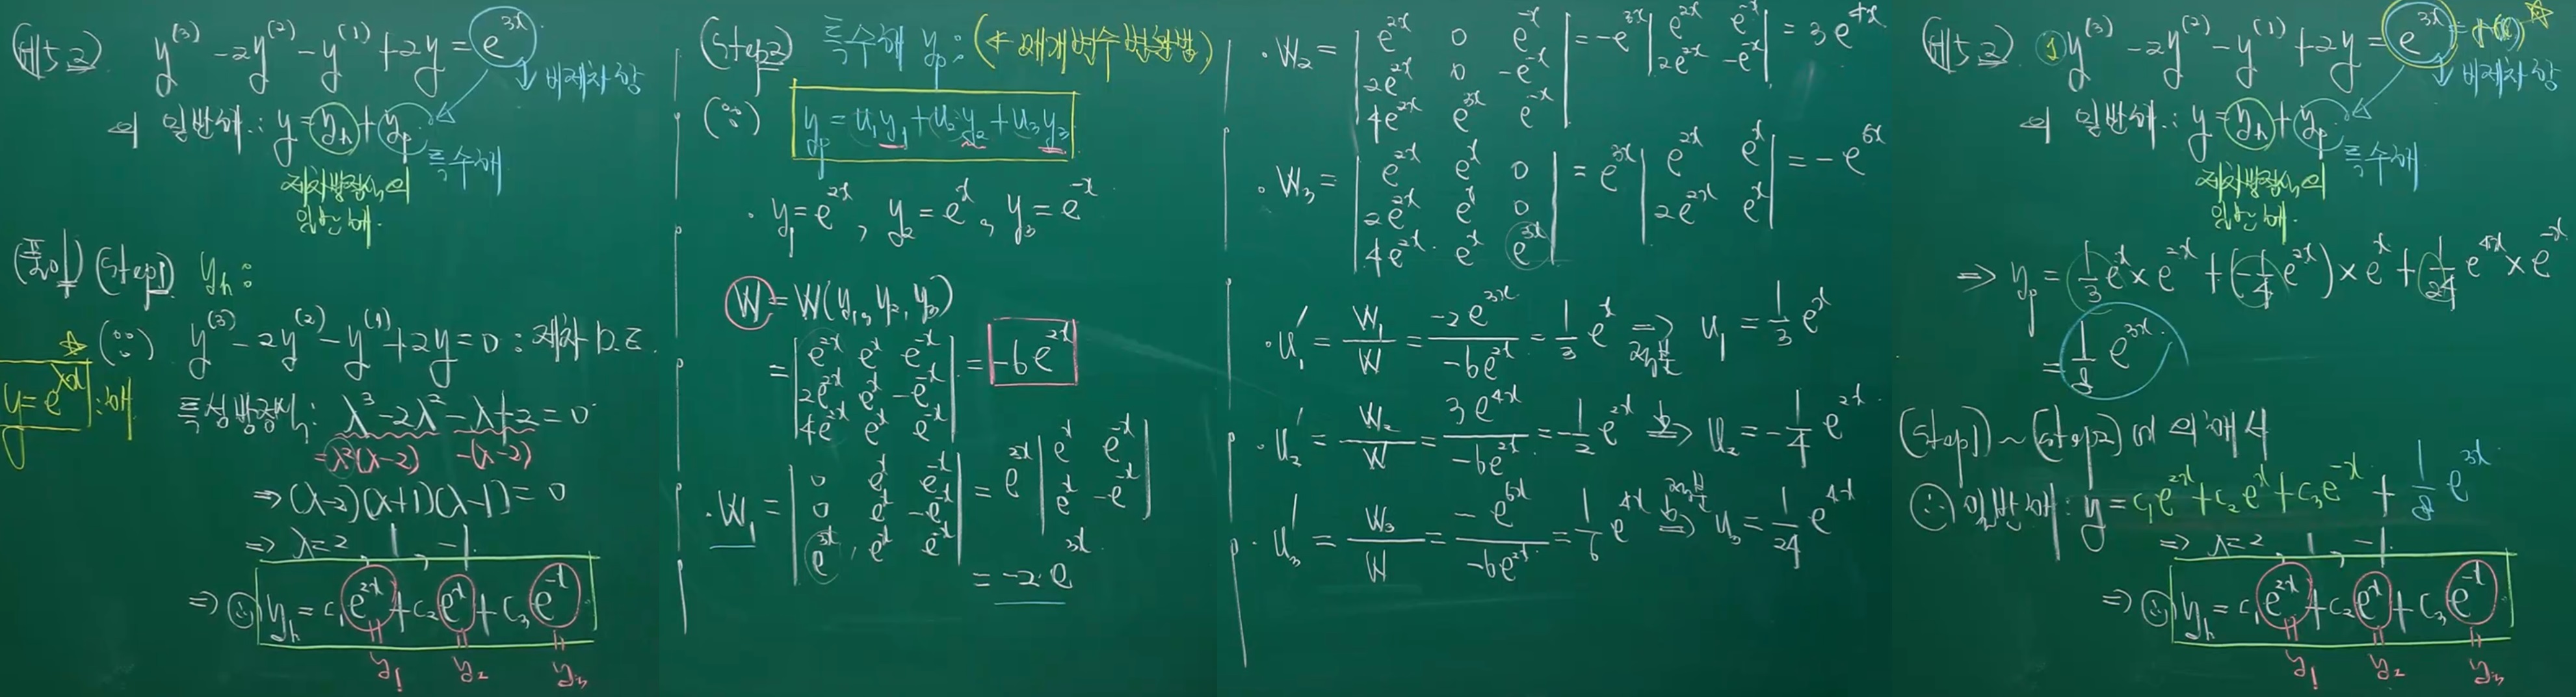 (예5.2) y⁽³⁾ - 2y⁽²⁾ - y⁽¹⁾ + 2y = e^{3x}
↓ 비제차항
의 일반해 : y = y_h + y_p
특수해
제차방정식의
일반해.
(풀이) (Step1) y_h :
☆ (∵) y⁽³⁾ - 2y⁽²⁾ - y⁽¹⁾ + 2y = 0 : 제차 D.E.
y = e^{λx} : 해
특성방정식 : λ³ - 2λ² - λ + 2 = 0
= λ²(λ-2) -(λ-2)
⇒ (λ-2)(λ+1)(λ-1) = 0
⇒ λ = 2, 1, -1
⇒ ∴ y_h = c₁e^{2x} + c₂e^{x} + c₃e^{-x}
y₁ y₂ y₃
(Step2) 특수해 y_p : (← 매개변수변환법)
(∵) y_p = u₁y₁ + u₂y₂ + u₃y₃
· y₁ = e^{2x}, y₂ = e^{x}, y₃ = e^{-x}
W = W(y₁, y₂, y₃)
= | e^{2x} e^{x} e^{-x} |
| 2e^{2x} e^{x} -e^{-x} | = -6e^{2x}
| 4e^{2x} e^{x} e^{-x} |
· W₁ = | 0 e^{x} e^{-x} |
| 0 e^{x} -e^{-x} | = e^{3x} | e^{x} e^{-x} |
| e^{3x} e^{x} e^{-x} | | e^{x} -e^{-x} |
= -2·e^{3x}
· W₂ = | e^{2x} 0 e^{-x} | = -e^{3x} | e^{2x} e^{-x} | = 3e^{4x}
| 2e^{2x} 0 -e^{-x} | | 2e^{2x} -e^{-x} |
| 4e^{2x} e^{3x} e^{-x} |
· W₃ = | e^{2x} e^{x} 0 | = e^{3x} | e^{2x} e^{x} | = -e^{6x}
| 2e^{2x} e^{x} 0 | | 2e^{2x} e^{x} |
| 4e^{2x} e^{x} e^{3x} |
· u₁′ = W₁/W = -2e^{3x}/-6e^{2x} = 1/3 e^{x} ⇒ 적분 u₁ = 1/3 e^{x}
· u₂′ = W₂/W = 3e^{4x}/-6e^{2x} = -1/2 e^{2x} ⇒ u₂ = -1/4 e^{2x}
· u₃′ = W₃/W = -e^{6x}/-6e^{2x} = 1/6 e^{4x} ⇒ 적분 u₃ = 1/24 e^{4x}
(예5.2) ① y⁽³⁾ - 2y⁽²⁾ - y⁽¹⁾ + 2y = e^{3x} = r(x) ☆
↓ 비제차항
의 일반해 : y = y_h + y_p
특수해
제차방정식의
일반해.
⇒ y_p = 1/3 e^{x} × e^{2x} + (-1/4 e^{2x}) × e^{x} + 1/24 e^{4x} × e^{-x}
= 1/8 e^{3x}
(Step1) ~ (Step2)에 의해서
∴ 일반해 : y = c₁e^{2x} + c₂e^{x} + c₃e^{-x} + 1/8 e^{3x}
⇒ λ = 2, 1, -1
⇒ ∴ y_h = c₁e^{2x} + c₂e^{x} + c₃e^{-x}
y₁ y₂ y₃